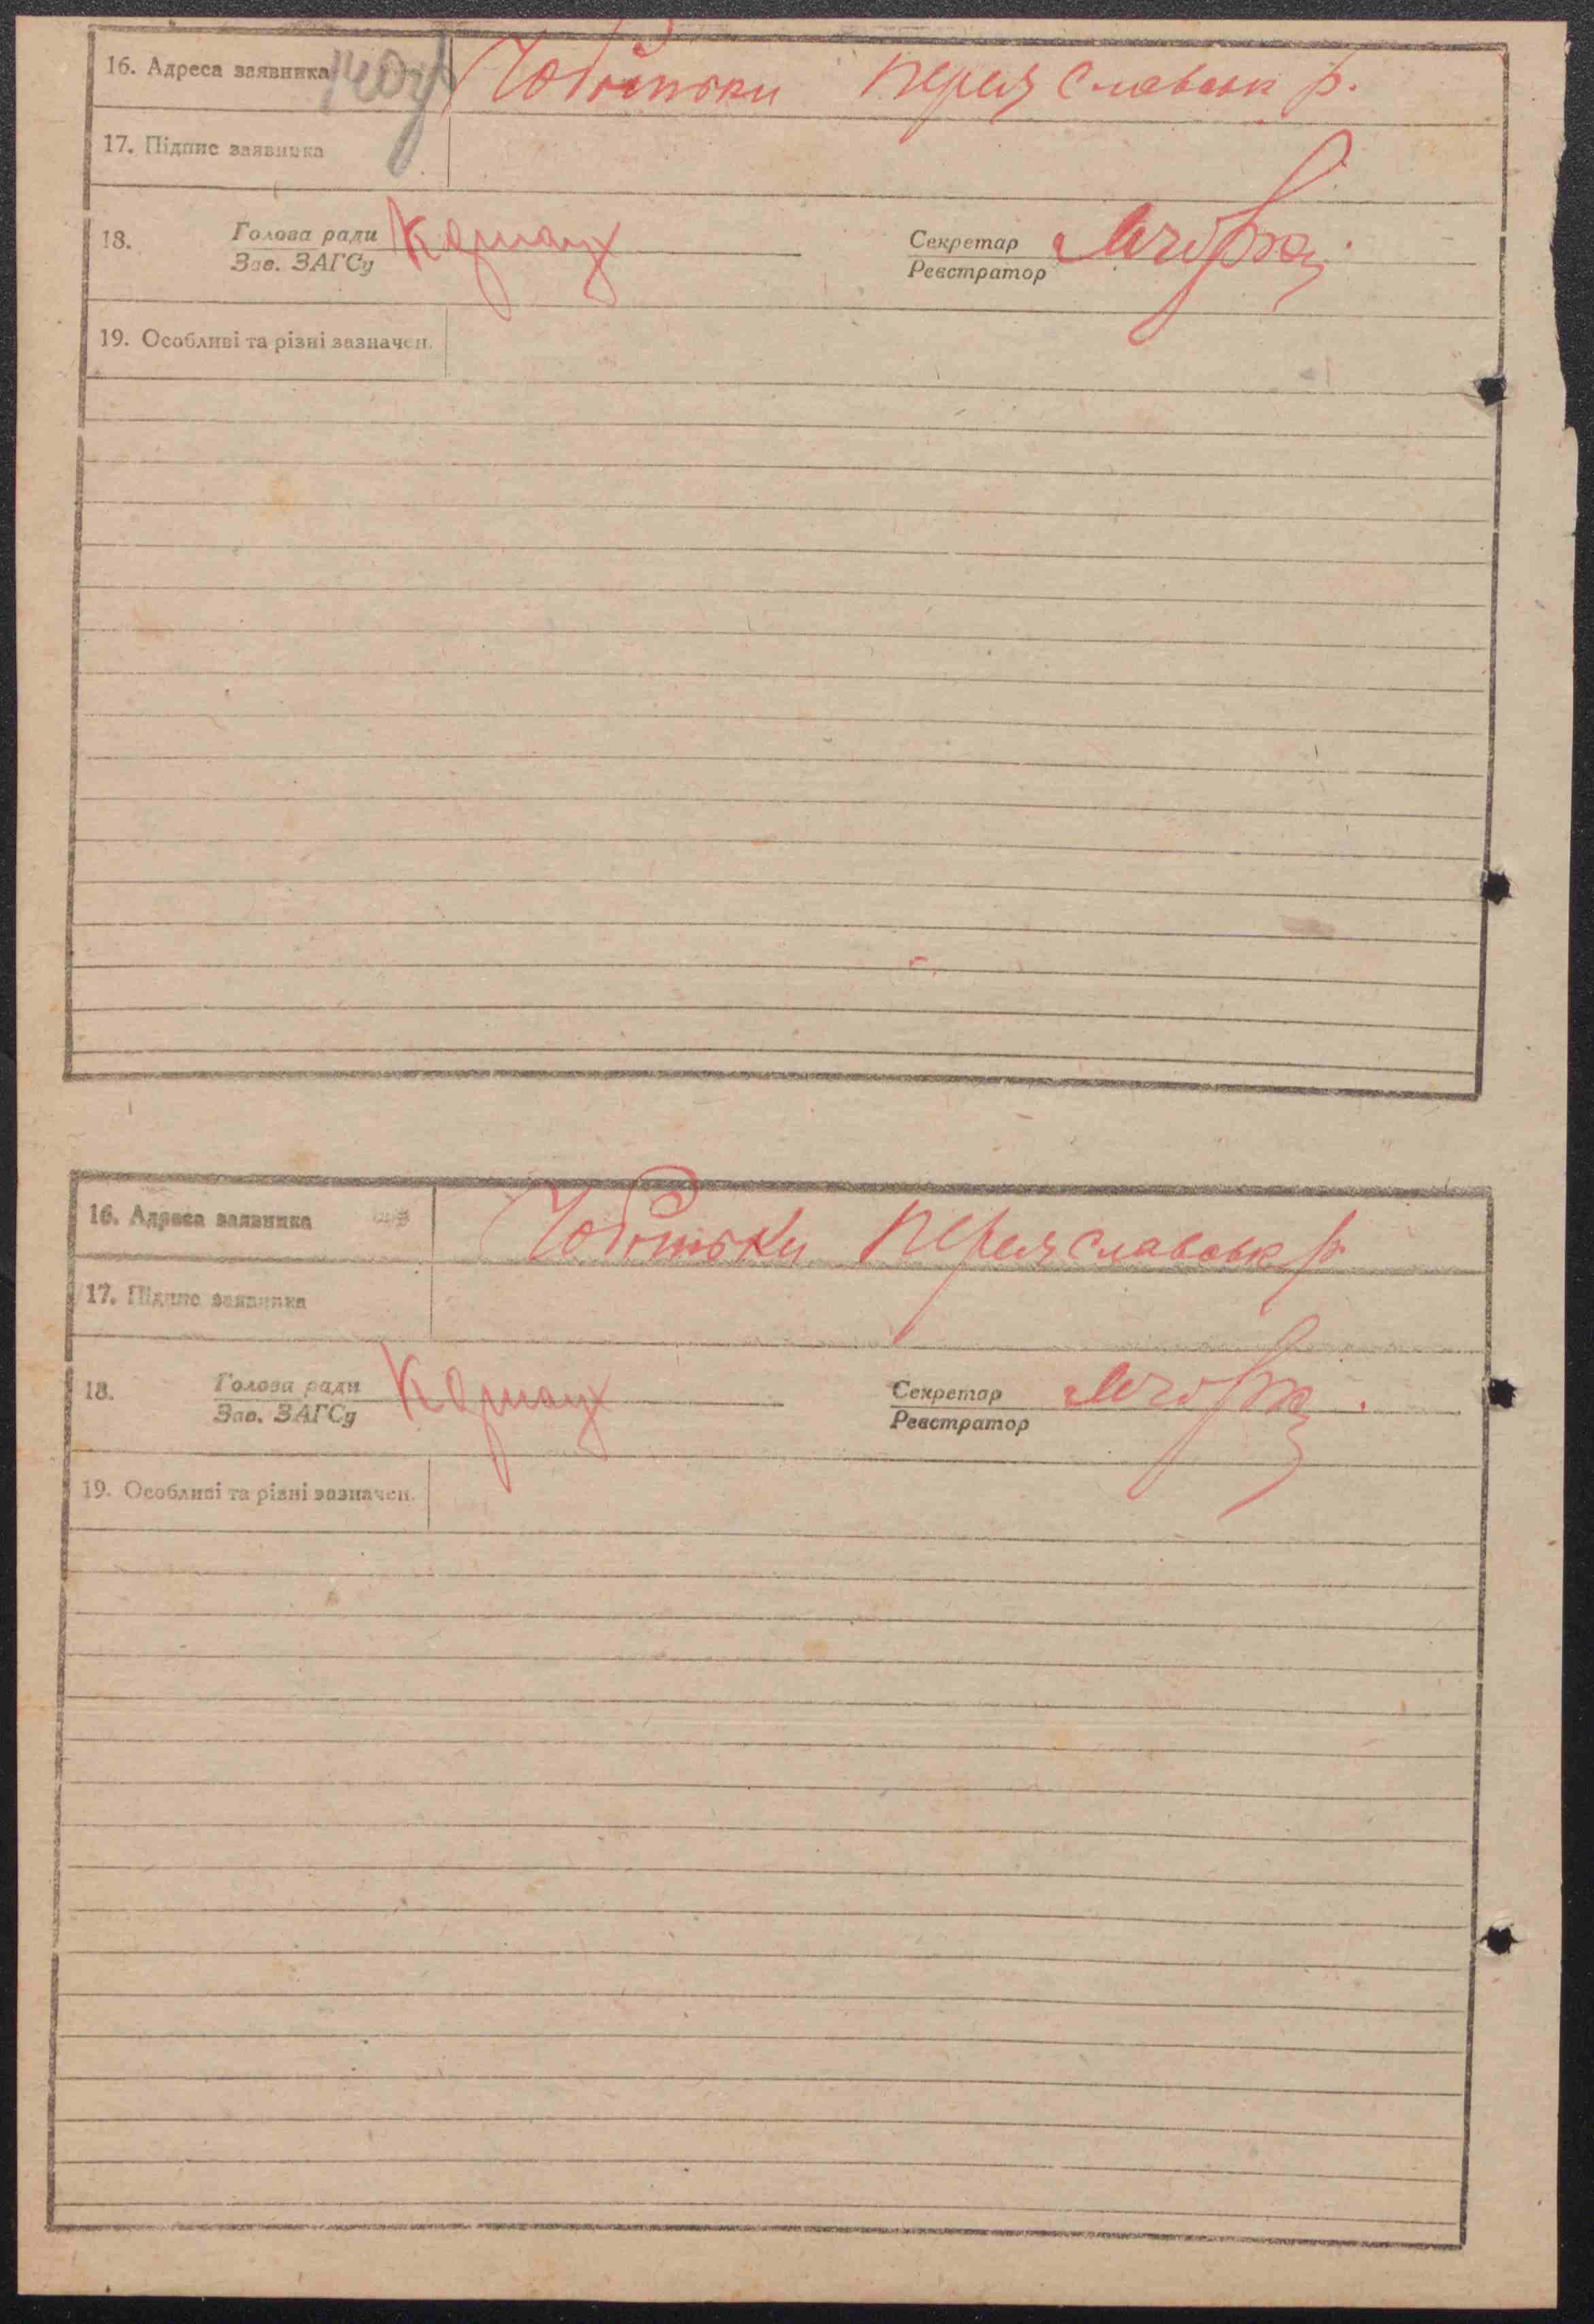 16. Адреса заявника Чобітьки Переяславськ р.
17. Підпис заявника
18. Голова ради Секретар
Зав. ЗАГСу Реєстратор
19. Особливі та різні зазначен.
16. Адреса заявника Чобітьки Переяславськ р.
17. Підпис заявника
18. Голова ради Секретар
Зав. ЗАГСу Реєстратор
19. Особливі та різні зазначен.